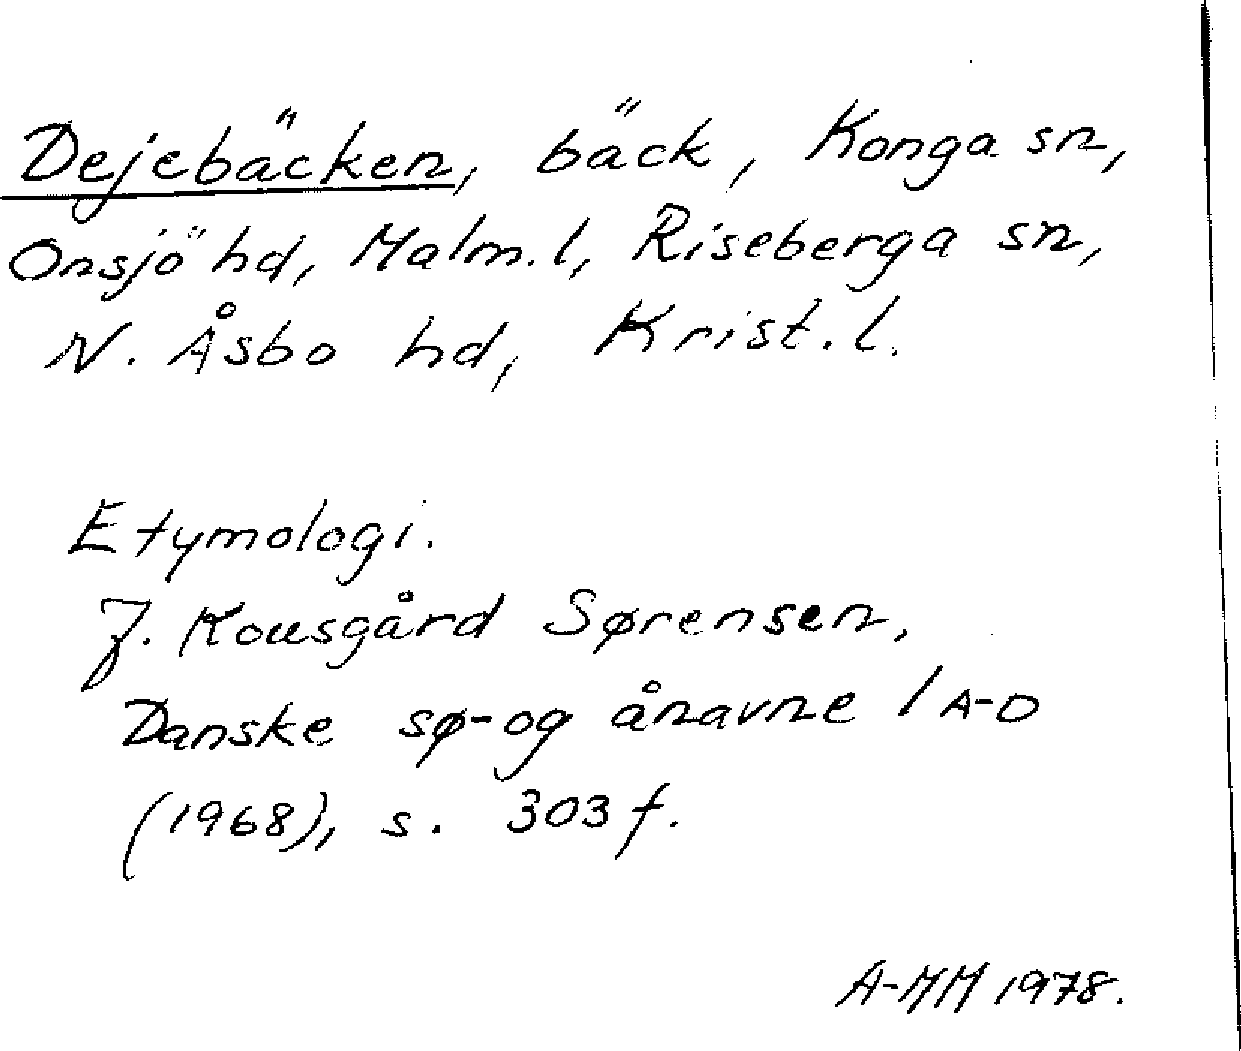 Dejebäcken, bäck, Konga sn,
Onsjö hd, Malm.l, Riseberga sn,
N. Åsbo hd, Krist.l.
Etymologi.
J. Kousgård Sørensen,
Danske sø- og ånavne 1 A-D
(1968), s. 303 f.
A-MM 1978.